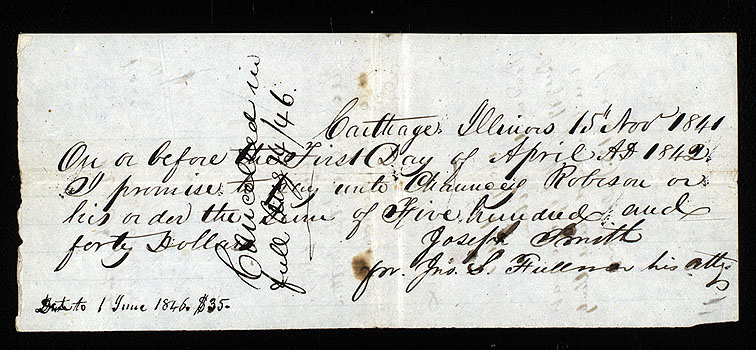 Carthage, Illinois 15 Nov 1841
On or before the First Day of April AD 1842.
I promise to pay unto Chauncey Robison or
his order the Sum of Five hundred and
forty Dollars
Joseph Smith
for. Jno. S. Fullmer his atty
Cancelled in
full 24/46.
to 1 June 1846. $35-